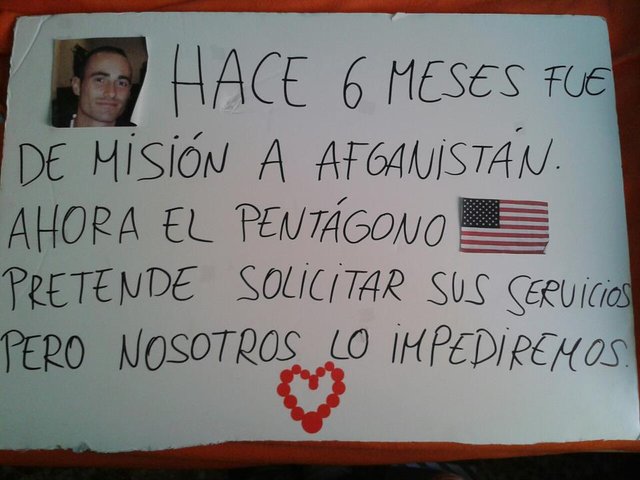 HACE 6 MESES FUE
DE MISIÓN A AFGANISTÁN.
AHORA EL PENTÁGONO
PRETENDE SOLICITAR SUS SERVICIOS
PERO NOSOTROS LO IMPEDIREMOS.